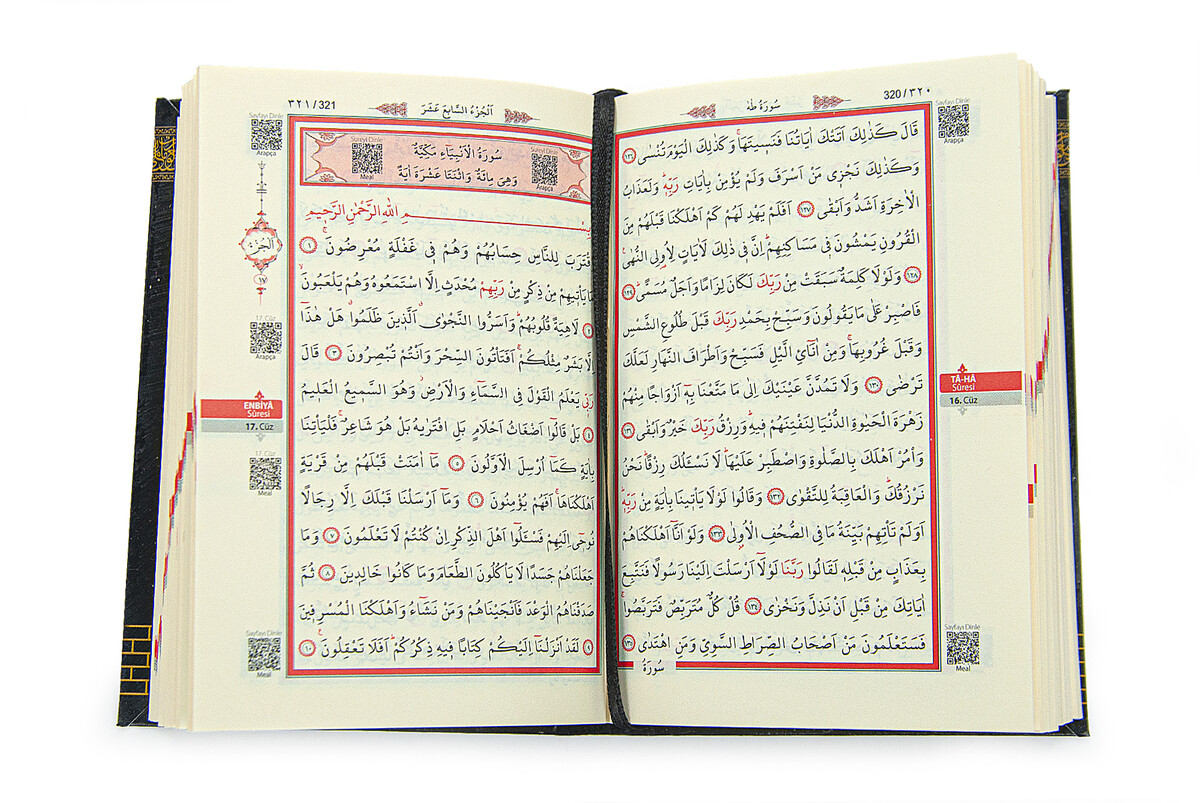 320/٣٢٠
سُورَةُ طٰهٰ
Sayfayı Dinle
Arapça
قَالَ كَذٰلِكَ اَتَتْكَ اٰيَاتُنَا فَنَسٖيتَهَاۚ وَكَذٰلِكَ الْيَوْمَ تُنْسٰى ﴿١٢٦﴾
وَكَذٰلِكَ نَجْزٖي مَنْ اَسْرَفَ وَلَمْ يُؤْمِنْ بِاٰيَاتِ رَبِّهٖؕ وَلَعَذَابُ
الْاٰخِرَةِ اَشَدُّ وَاَبْقٰى ﴿١٢٧﴾ اَفَلَمْ يَهْدِ لَهُمْ كَمْ اَهْلَكْنَا قَبْلَهُمْ مِنَ
الْقُرُونِ يَمْشُونَ فٖي مَسَاكِنِهِمْؕ اِنَّ فٖي ذٰلِكَ لَاٰيَاتٍ لِاُو۬لِي النُّهٰىۚ
﴿١٢٨﴾ وَلَوْلَا كَلِمَةٌ سَبَقَتْ مِنْ رَبِّكَ لَكَانَ لِزَامًا وَاَجَلٌ مُسَمًّىؕ ﴿١٢٩﴾
فَاصْبِرْ عَلٰى مَا يَقُولُونَ وَسَبِّحْ بِحَمْدِ رَبِّكَ قَبْلَ طُلُوعِ الشَّمْسِ
وَقَبْلَ غُرُوبِهَاۚ وَمِنْ اٰنَآئِ الَّيْلِ فَسَبِّحْ وَاَطْرَافَ النَّهَارِ لَعَلَّكَ
تَرْضٰى ﴿١٣٠﴾ وَلَا تَمُدَّنَّ عَيْنَيْكَ اِلٰى مَا مَتَّعْنَا بِهٖٓ اَزْوَاجًا مِنْهُمْ
زَهْرَةَ الْحَيٰوةِ الدُّنْيَا لِنَفْتِنَهُمْ فٖيهِؕ وَرِزْقُ رَبِّكَ خَيْرٌ وَاَبْقٰى ﴿١٣١﴾
وَأْمُرْ اَهْلَكَ بِالصَّلٰوةِ وَاصْطَبِرْ عَلَيْهَاؕ لَا نَسْـَٔلُكَ رِزْقًاؕ نَحْنُ
نَرْزُقُكَؕ وَالْعَاقِبَةُ لِلتَّقْوٰى ﴿١٣٢﴾ وَقَالُوا لَوْلَا يَأْتٖينَا بِاٰيَةٍ مِنْ رَبِّهٖؕ
اَوَلَمْ تَأْتِهِمْ بَيِّنَةُ مَا فِي الصُّحُفِ الْاُو۫لٰى ﴿١٣٣﴾ وَلَوْ اَنَّٓا اَهْلَكْنَاهُمْ
بِعَذَابٍ مِنْ قَبْلِهٖ لَقَالُوا رَبَّنَا لَوْلَٓا اَرْسَلْتَ اِلَيْنَا رَسُولًا فَنَتَّبِعَ
اٰيَاتِكَ مِنْ قَبْلِ اَنْ نَذِلَّ وَنَخْزٰى ﴿١٣٤﴾ قُلْ كُلٌّ مُتَرَبِّصٌ فَتَرَبَّصُواۚ
فَسَتَعْلَمُونَ مَنْ اَصْحَابُ الصِّرَاطِ السَّوِيِّ وَمَنِ اهْتَدٰى ﴿١٣٥﴾
سُورَةُ
TÂ-HÂ
Sûresi
16. Cüz
Sayfayı Dinle
Meal
٣٢١/321
اَلْجُزْءُ السَّابِعُ عَشَرَ
Sayfayı Dinle
Arapça
Sûreyi Dinle
Meal
Sûreyi Dinle
Arapça
سُورَةُ الْاَنْبِيَاءِ مَكِّيَّةٌ
وَهِيَ مِائَةٌ وَاثْنَتَا عَشْرَةَ اٰيَةً
بِسْمِ اللّٰهِ الرَّحْمٰنِ الرَّحٖيمِ
قْتَرَبَ لِلنَّاسِ حِسَابُهُمْ وَهُمْ فٖي غَفْلَةٍ مُعْرِضُونَۚ ﴿١﴾
مَا يَأْتٖيهِمْ مِنْ ذِكْرٍ مِنْ رَبِّهِمْ مُحْدَثٍ اِلَّا اسْتَمَعُوهُ وَهُمْ يَلْعَبُونَۙ
﴿٢﴾ لَاهِيَةً قُلُوبُهُمْؕ وَاَسَرُّوا النَّجْوٰىۗ اَلَّذٖينَ ظَلَمُواۗ هَلْ هٰذَٓا
اِلَّا بَشَرٌ مِثْلُكُمْۚ اَفَتَأْتُونَ السِّحْرَ وَاَنْتُمْ تُبْصِرُونَ ﴿٣﴾ قَالَ
رَبّٖي يَعْلَمُ الْقَوْلَ فِي السَّمَٓاءِ وَالْاَرْضِؗ وَهُوَ السَّمٖيعُ الْعَلٖيمُ
﴿٤﴾ بَلْ قَالُٓوا اَضْغَاثُ اَحْلَامٍ بَلِ افْتَرٰيهُ بَلْ هُوَ شَاعِرٌۚ فَلْيَأْتِنَا
بِاٰيَةٍ كَمَٓا اُرْسِلَ الْاَوَّلُونَ ﴿٥﴾ مَٓا اٰمَنَتْ قَبْلَهُمْ مِنْ قَرْيَةٍ
اَهْلَكْنَاهَاۚ اَفَهُمْ يُؤْمِنُونَ ﴿٦﴾ وَمَٓا اَرْسَلْنَا قَبْلَكَ اِلَّا رِجَالًا
نُوحٖٓي اِلَيْهِمْ فَسْـَٔلُٓوا اَهْلَ الذِّكْرِ اِنْ كُنْتُمْ لَا تَعْلَمُونَ ﴿٧﴾ وَمَا
جَعَلْنَاهُمْ جَسَدًا لَا يَأْكُلُونَ الطَّعَامَ وَمَا كَانُوا خَالِدٖينَ ﴿٨﴾ ثُمَّ
صَدَقْنَاهُمُ الْوَعْدَ فَاَنْجَيْنَاهُمْ وَمَنْ نَشَٓاءُ وَاَهْلَكْنَا الْمُسْرِفٖينَ
﴿٩﴾ لَقَدْ اَنْزَلْنَٓا اِلَيْكُمْ كِتَابًا فٖيهِ ذِكْرُكُمْؕ اَفَلَا تَعْقِلُونَۚ ﴿١٠﴾
اَلْجُزْءُ
١٧
17. Cüz
Arapça
ENBİYÂ
Sûresi
17. Cüz
17. Cüz
Meal
Sayfayı Dinle
Meal